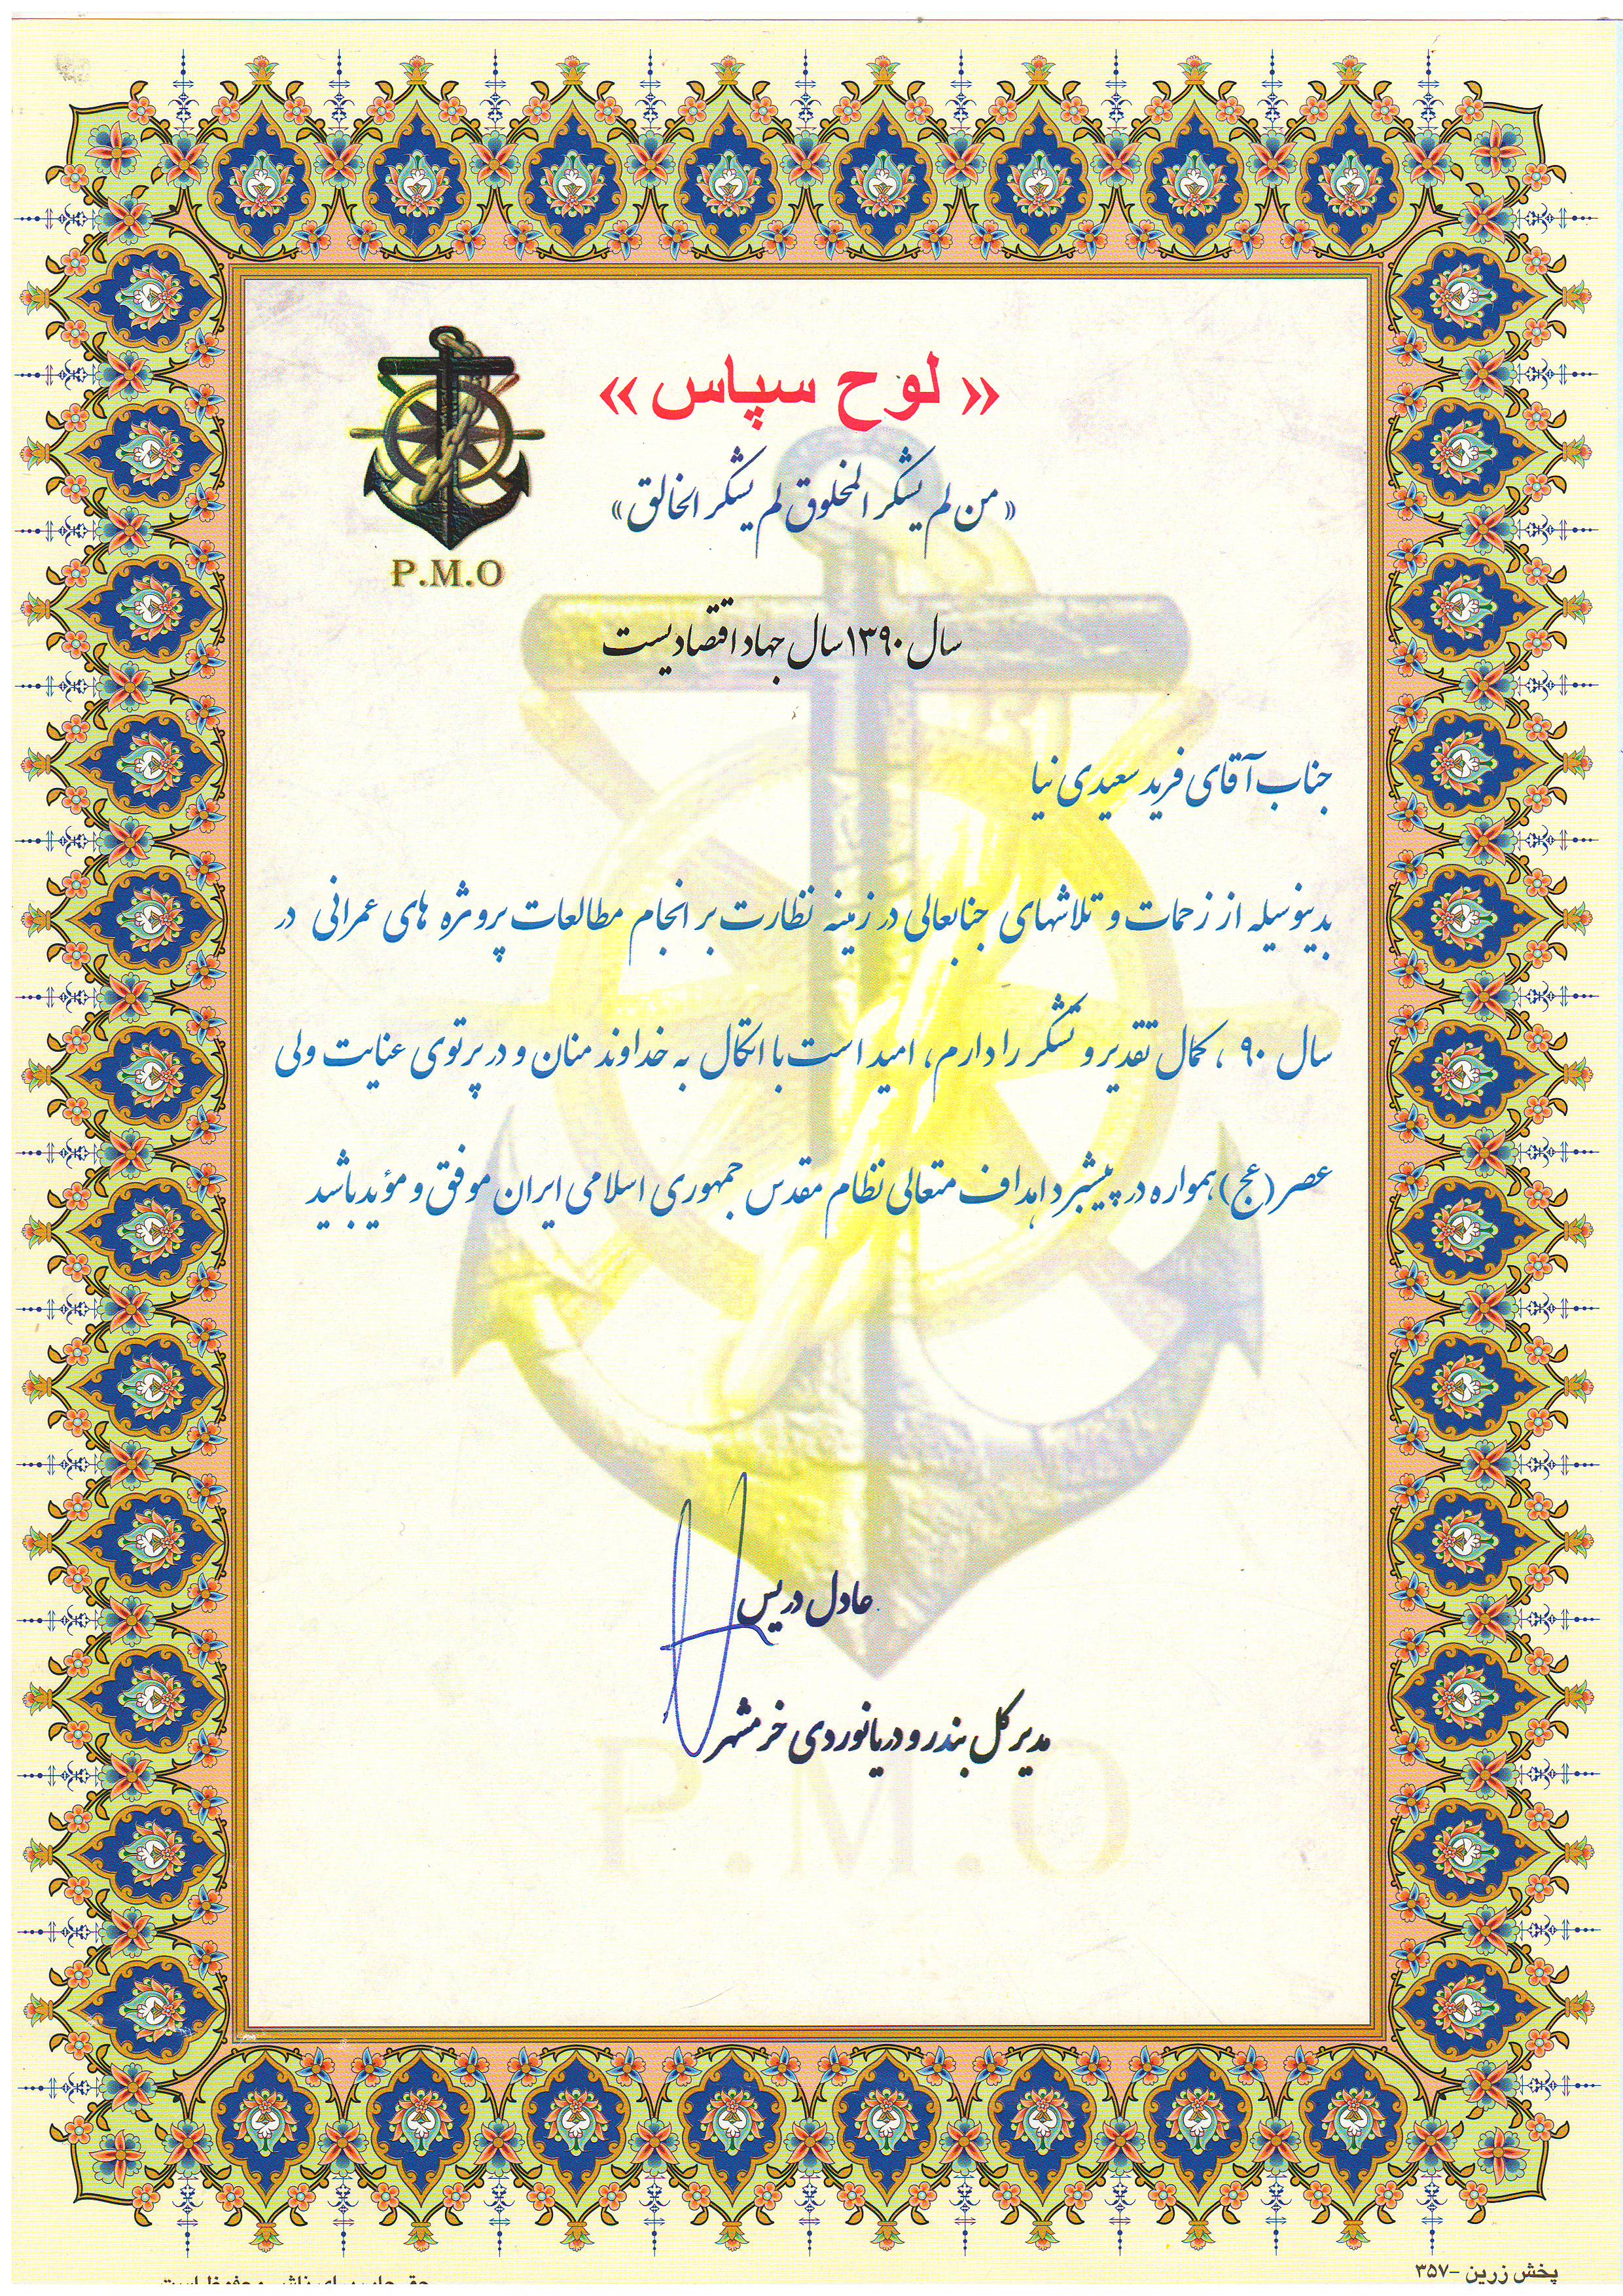 « لوح سپاس »
« من لم یشکر المخلوق لم یشکر الخالق »
P.M.O
سال ۱۳۹۰ سال جهاد اقتصادیست
جناب آقای فرید سعیدی نیا
بدینوسیله از زحمات و تلاشهای جنابعالی در زمینه نظارت بر انجام مطالعات پروژه های عمرانی در
سال ۹۰ ، کمال تقدیر و تشکر را دارم، امید است با اتکال به خداوند منان و در پرتوی عنایت ولی
عصر (عج) همواره در پیشبرد اهداف متعالی نظام مقدس جمهوری اسلامی ایران موفق و مؤید باشید
عادل دریس
مدیر کل بندر و دریانوردی خرمشهر
P.M.O
پخش زرین -۳۵۷